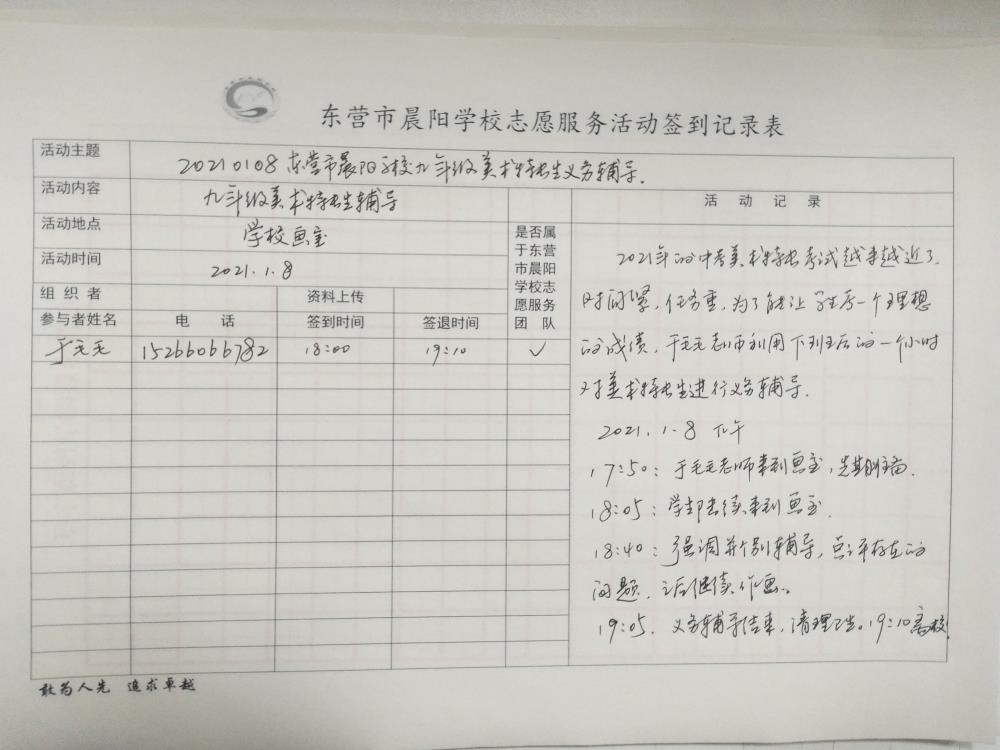 东营市晨阳学校志愿服务活动签到记录表
活动主题
20210108东营市晨阳学校九年级美术特长生义务辅导.
活动内容
九年级美术特长生辅导
活动地点
学校画室
活动时间
2021.1.8
组织者
资料上传
参与者姓名
电话
签到时间
签退时间
是否属
于东营
市晨阳
学校志
愿服务
团队
于毛毛
15266066782
18:00
19:10
✓
活动记录
2021年的中考美术特长考试越来越近了.
时间紧,任务重,为了能让学生考一个理想
的成绩,于毛毛老师利用下班后的一个小时
对美术特长生进行义务辅导.
2021.1.8 下午
17:50:于毛毛老师来到画室,
18:05:学生陆续来到画室.
18:40:强调并个别辅导,点评存在的
问题,之后继续作画。
19:05.义务辅导结束,清理卫生。19:10离校.
敢为人先 追求卓越